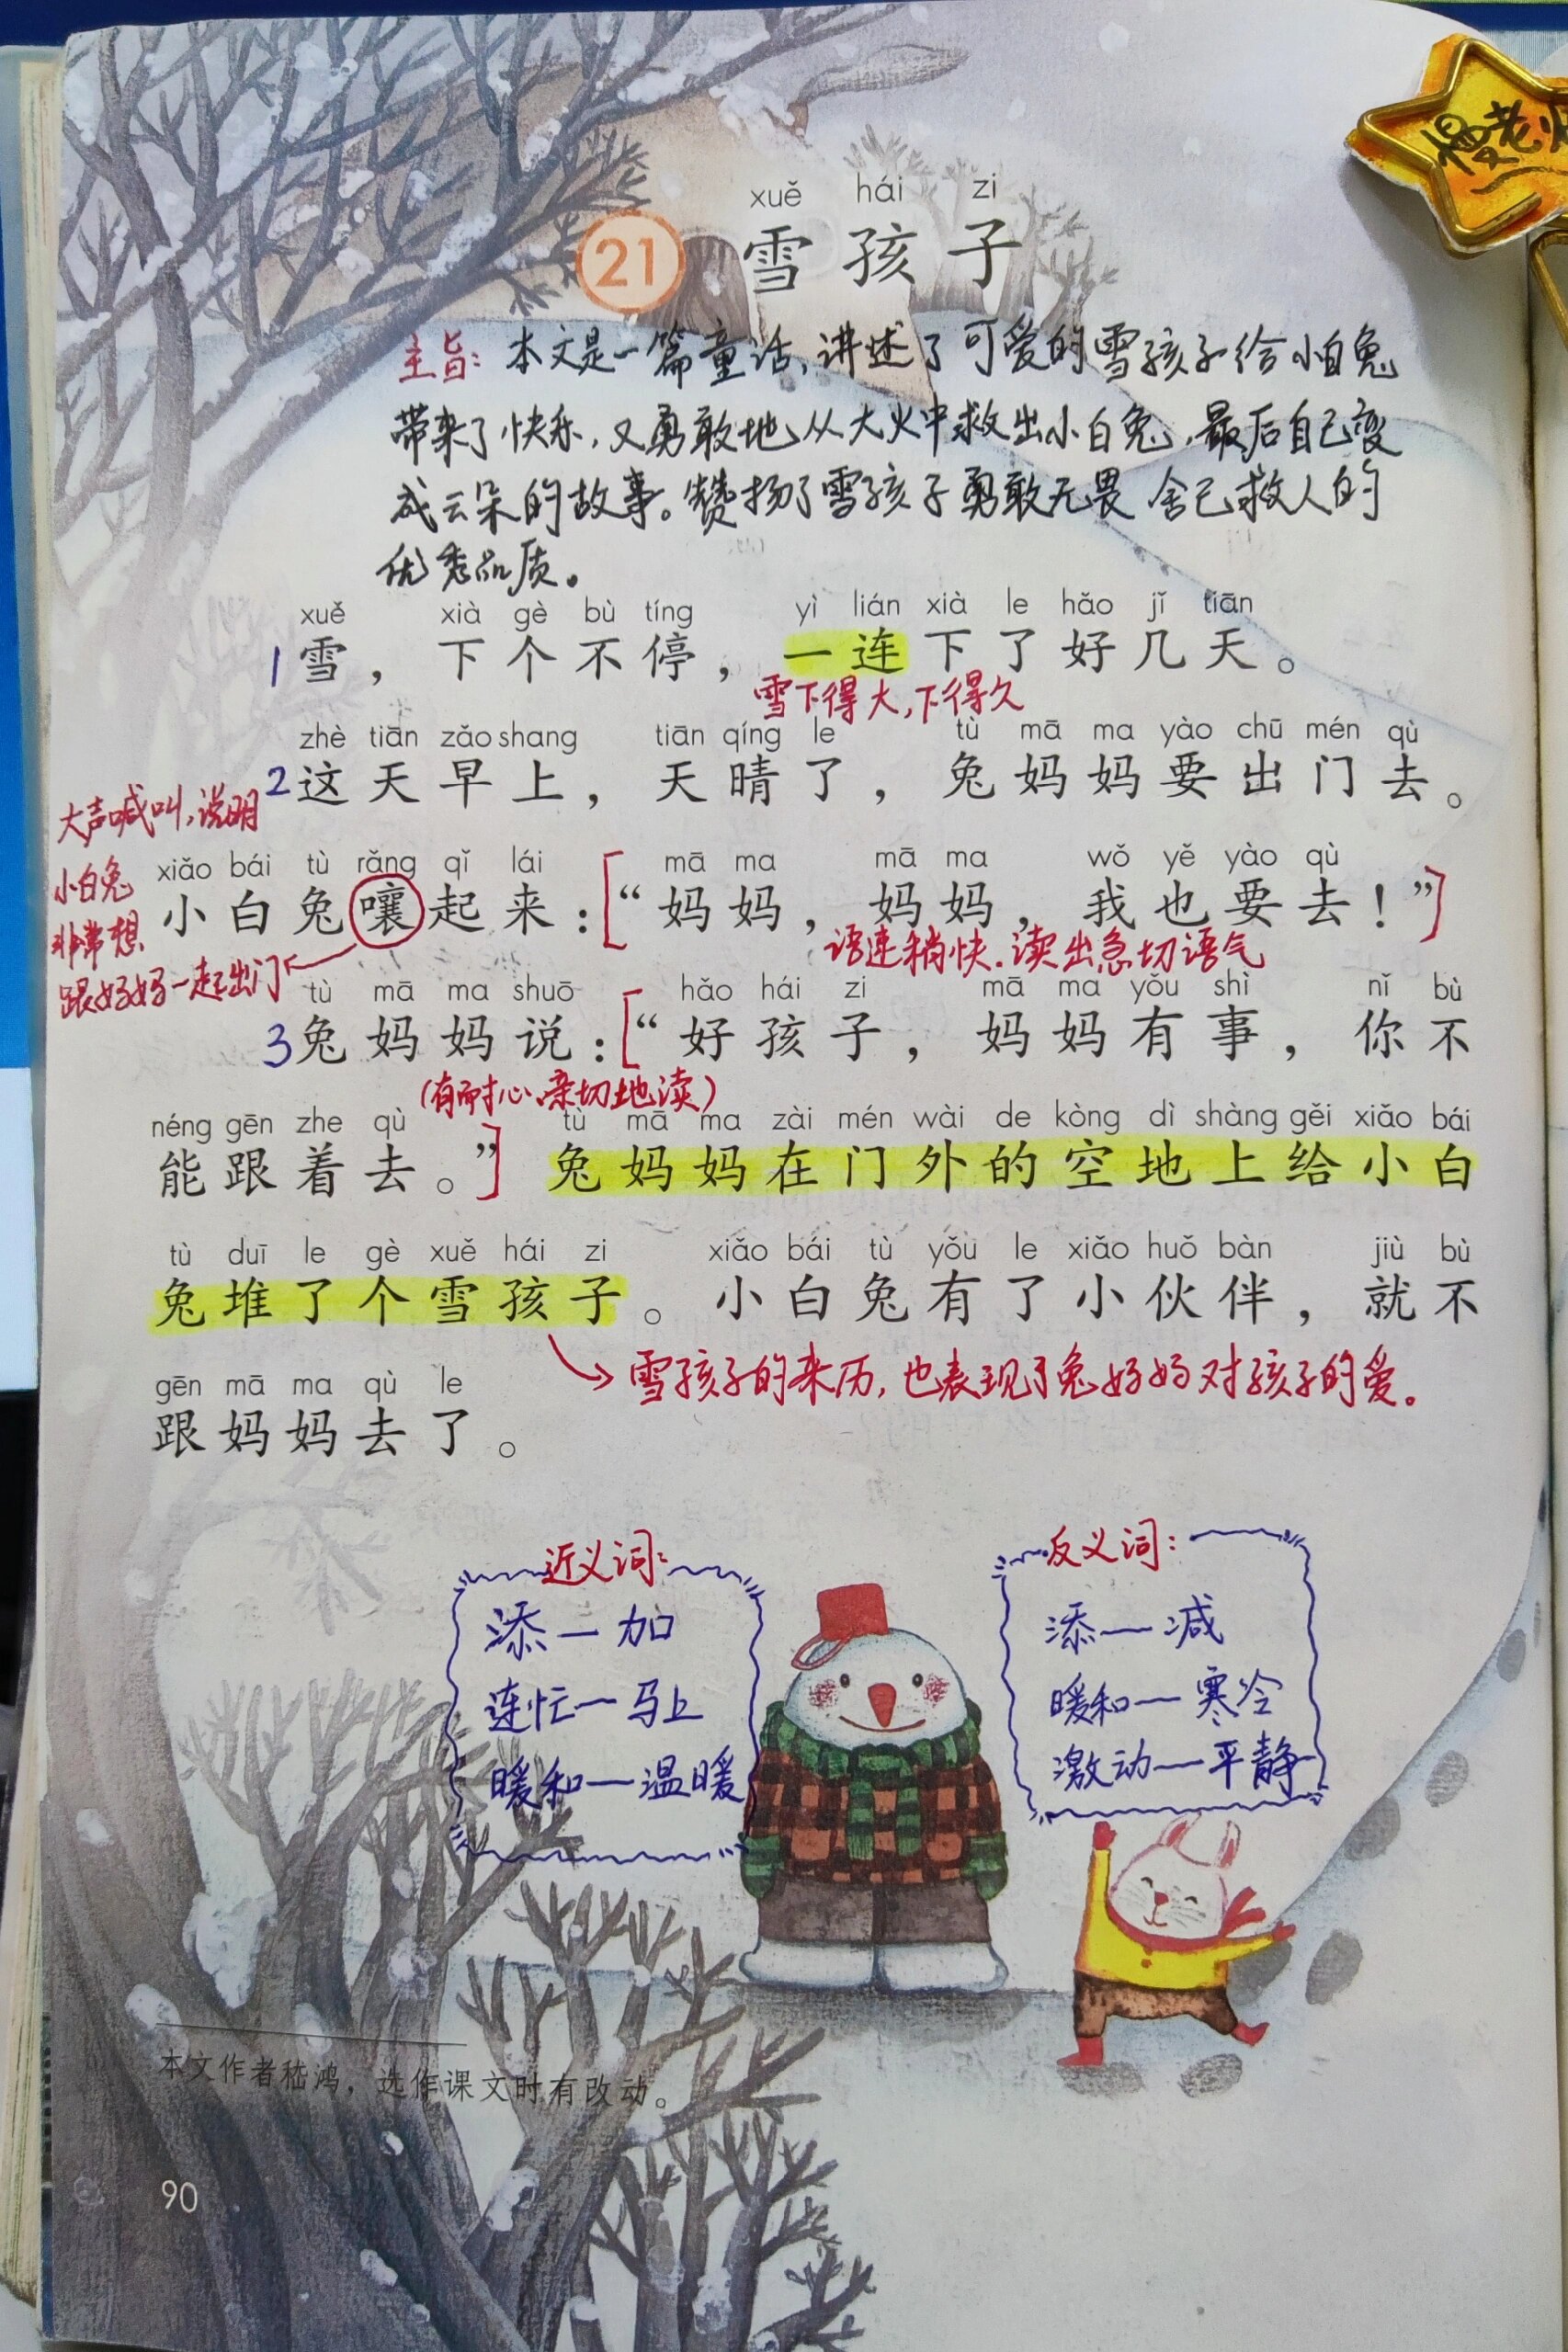 慢老师
xuě hái zi
21 雪孩子
主旨：本文是一篇童话，讲述了可爱的雪孩子给小白兔
带来了快乐，又勇敢地从大火中救出小白兔，最后自己变
成云朵的故事。赞扬了雪孩子勇敢无畏 舍己救人的
优秀品质。
xuě xià gè bù tíng yì lián xià le hǎo jǐ tiān
1 雪，下个不停，一连下了好几天。
雪下得大，下得久
zhè tiān zǎo shang tiān qíng le tù mā ma yào chū mén qù
2 这天早上，天晴了，兔妈妈要出门去。
大声喊叫，说明
小白兔
非常想
跟妈妈一起出门
xiǎo bái tù rǎng qǐ lái mā ma mā ma wǒ yě yào qù
小白兔嚷起来：[“妈妈，妈妈，我也要去！”]
语速稍快，读出急切语气
tù mā ma shuō hǎo hái zi mā ma yǒu shì nǐ bù
3 兔妈妈说：[“好孩子，妈妈有事，你不
(有耐心、亲切地读)
néng gēn zhe qù tù mā ma zài mén wài de kòng dì shàng gěi xiǎo bái
能跟着去。”] 兔妈妈在门外的空地上给小白
tù duī le gè xuě hái zi xiǎo bái tù yǒu le xiǎo huǒ bàn jiù bù
兔堆了个雪孩子。小白兔有了小伙伴，就不
雪孩子的来历，也表现了兔妈妈对孩子的爱。
gēn mā ma qù le
跟妈妈去了。
近义词：
添—加
连忙—马上
暖和—温暖
反义词：
添—减
暖和—寒冷
激动—平静
本文作者嵇鸿，选作课文时有改动。
90